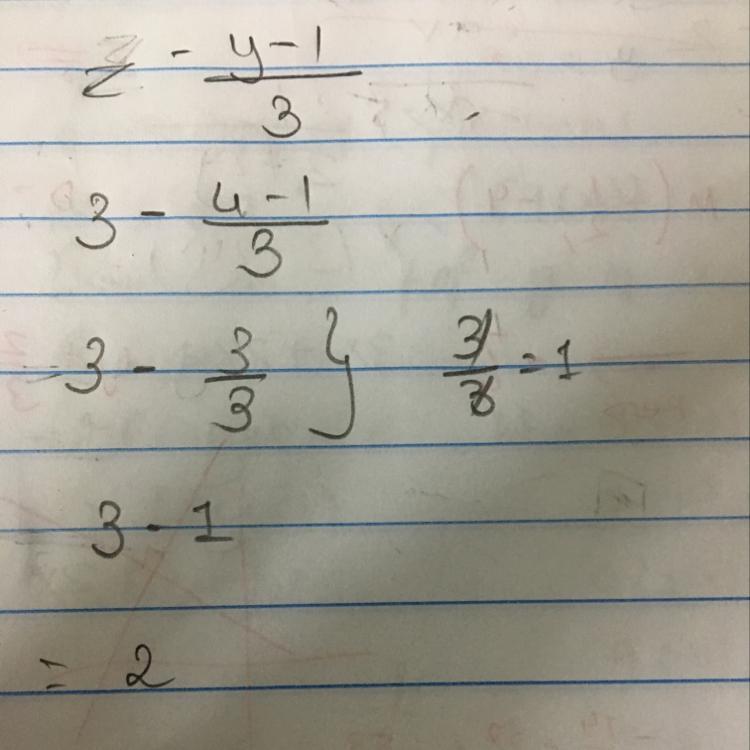 z - (y-1)/3
3 - (4-1)/3
=3 - 3/3 } 3/3 = 1
3 - 1
= 2